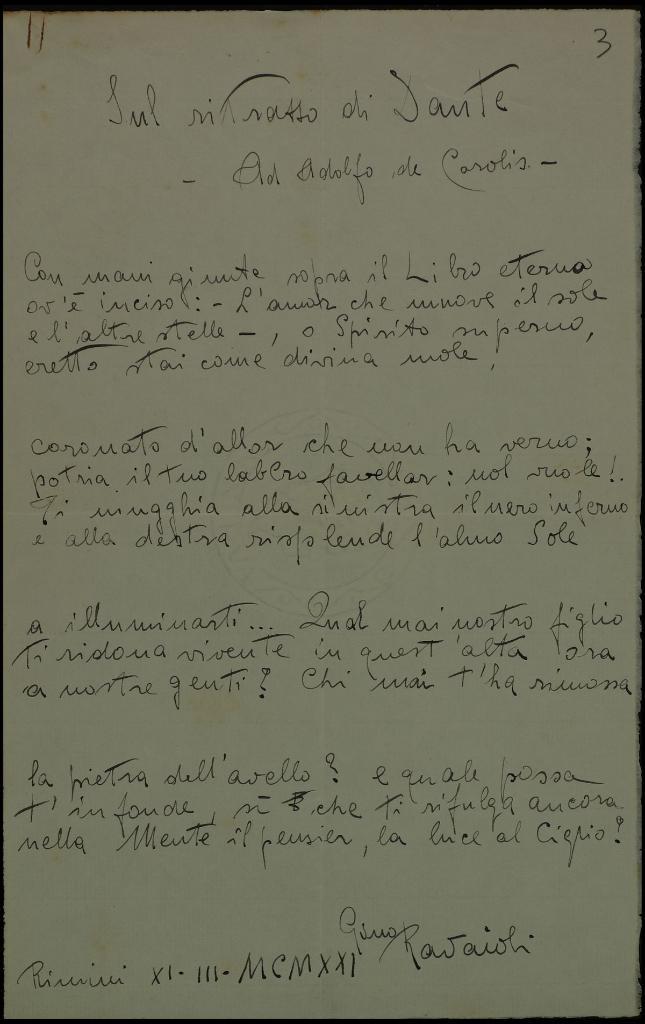 3
Sul ritratto di Dante
- Ad Adolfo de Carolis. -
Con mani giunte sopra il Libro eterno
ov'è inciso: - L'amor che muove il sole
e l'altre stelle -, o Spirito superno,
eretto stai come divina mole,
coronato d'allor che non ha verno;
potria il tuo labbro favellar: nol vuole!.
Ti mugghia alla sinistra il nero inferno
e alla destra risplende l'almo Sole
a illuminarti... Qual mai nostro figlio
ti ridona vivente in quest'alta ora
a nostre genti? Chi mai t'ha rimossa
la pietra dell'avello? e quale possa
t'infonde, sì che ti rifulga ancora
nella Mente il pensier, la luce al Ciglio?
Gino Ravaioli
Rimini XI-III-MCMXXI